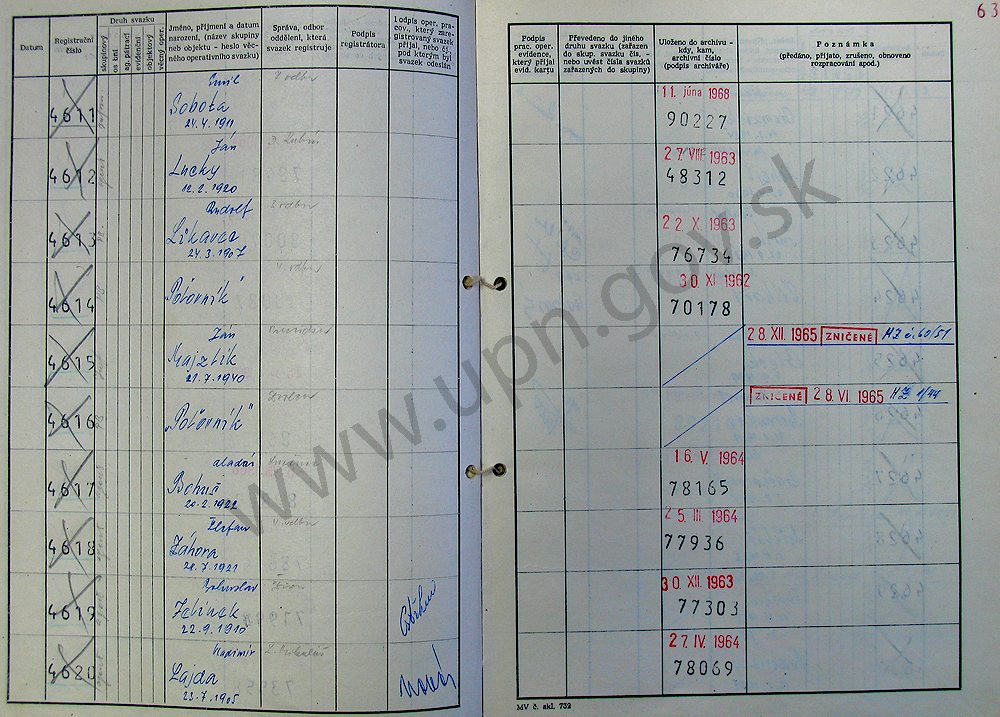 63
Datum
Registrační číslo
Druh svazku
skupinový
os kní
ag. pátrací
evidenční
objektový
věcný oper.
Jméno, příjmení a datum
narození, (název skupiny
neb objektu - heslo věc-
ného operativního svazku)
Správa, odbor
oddělení, která
svazek registruje
Podpis
registrátora
podpis oper. pra-
cov., který zare-
gistrovaný svazek
přijal, nebo čí.,
pod kterým byl
svazek odeslán
Podpis
prac. oper.
evidence,
který přijal
evid. kartu
Převedeno do jiného
druhu svazku (zařazen
do skup. svazku čís. -
nebo uvést čísla svazků
zařazených do skupiny)
Uloženo do archivu -
kdy, kam,
archivní číslo
(podpis archiváře)
Poznámka
(předáno, přijato, zrušeno, obnoveno
rozpracování apod.)
4611 Emil Sobota 24.4.1911 V. odbor 11. júna 1968 90227
4612 Ján Lucky 12.2.1920 D. Kubín 27. VIII 1963 48312
4613 Rudolf Likavec 24.3.1907 odbor 22 X. 1963 76734
4614 Poľovník V. odbor 30. XI 1962 70178
4615 Ján Majzlík 21.7.1940 Prievidza 28. XII. 1965 ZNIČENÉ MZ č. 60/51
4616 "Poľovník" ZNIČENÉ 28. VI. 1965
4617 Aladár Bohuš 20.2.1922 16. V. 1964 78165
4618 Štefan Záhora 21.7.1921 V. odbor 25. III 1964 77936
4619 Bohuslav Jelínek 22.9.1910 30. XII. 1963 77303
4620 Vladimír Lajda 23.7.1905 L. Mikuláš 27. IV. 1964 78069
MV č. skl. 732
www.upn.gov.sk